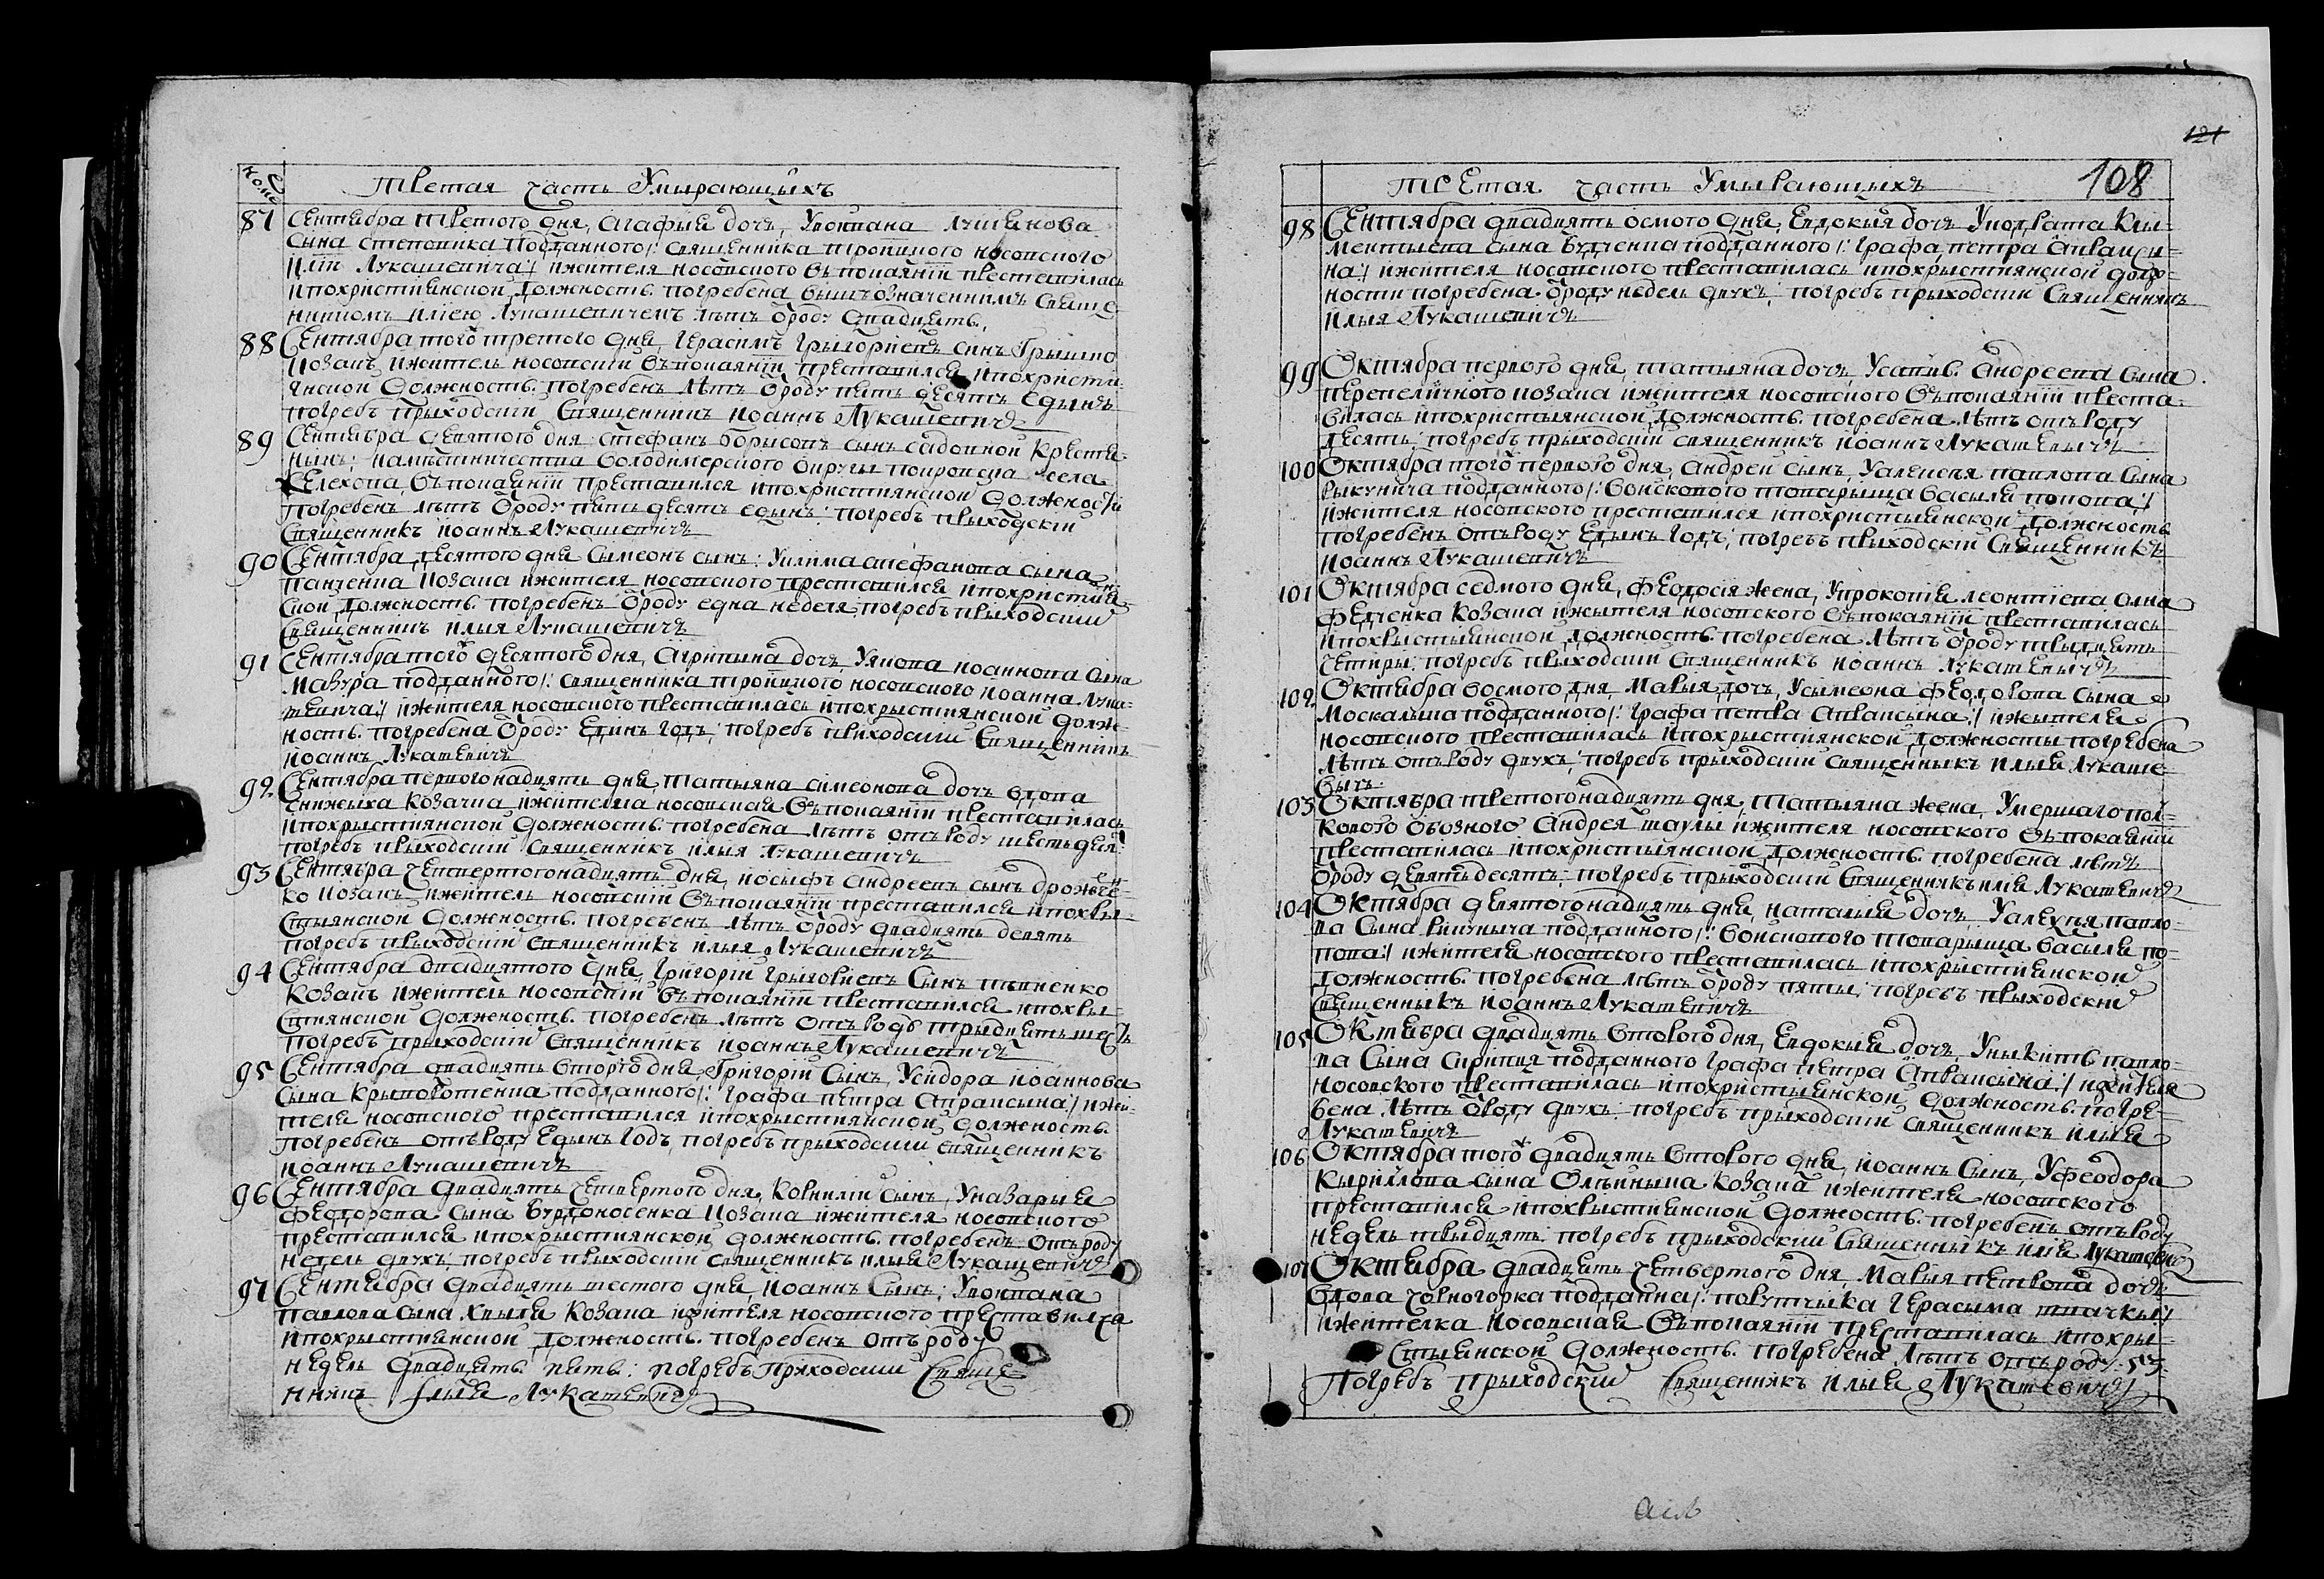 Третая часть Умырающыхъ
87 Сентября третого дня, Агафия дочъ,
сына подданного /: священника троицкого носовского
Илии Лукашевича :/ ижителя носовского въ покаянїи преставилась
ипохристиянской должность погребена вышъозначеннимъ свяще-
нникомъ Илиею Лукашевичемъ лѣтъ ѿроду двадцять
88 Сентября того третого дня, Герасимъ Григориевъ синъ Гришко
козакъ ижитель носовскїй въпокаянїи преставился ипохристи-
янской должность погребенъ лѣтъ ѿроду пять десятъ едынъ
погребъ прыходскїи священникъ Иоаннъ Лукашевичъ
89 Сентября девятого дня Стефанъ Борысовъ сынъ садовной крестя-
нынъ намѣстничества володимерского округы покровска села
въпокаянїи преставился ипохристиянской должности
погребенъ лѣтъ ѿроду пять десятъ едынъ погребъ прыходскїи
священникъ Иоаннъ Лукашевичъ
90 Сентября десятого дня Сымеонъ сынъ, Уклима Стефанова сына
Панченка козака ижителя носовского преставился ипохристиян-
ской должность погребенъ ѿроду една неделя погребъ прыходскїи
священникъ Илыя Лукашевичъ
91 Сентября того десятого дня, Агрипына дочъ Уякова Иоаннова сына
Мазура подданного /: священника троицкого носовского Иоанна Лука-
шевича :/ ижителя носовского преставилась ипохрыстиянской долж-
ность погребена ѿроду единъ годъ, погребъ прыходскїи священникъ
Иоаннъ Лукашевичъ
92 Сентября первогонадцять дня, Татыяна Симеонова дочъ вдова
козачка ижителка носовская въпокаянїи преставилась
ипохрыстиянской должность погребена лѣтъ отъроду шестьдеся
погребъ прыходскїи священникъ Илыя Лукашевичъ
93 Сентября четвертогонадцять дня, Иосыфъ Андреевъ сынъ
ко козакъ ижитель носовскїи въпокаянїи преставился ипохры-
стыянской должность погребенъ лѣтъ ѿроду двадцять девять
погребъ прыходскїи священникъ Илыя Лукашевичъ
94 Сентября двадцятого дня, Григорїи Грыгориевъ сынъ
козакъ ижитель носовскїи въпокаянїи преставился ипохры-
стиянской должность погребенъ лѣтъ отъроду трыдцять шесть
погребъ прыходскїи священникъ Иоаннъ Лукашевичъ
95 Сентября двадцять второго дня, Григорїи сынъ, Усидора Иоаннова
сына подданного /: графа Петра Апраксына :/ ижи-
теля носовского преставился ипохрыстиянской должность
погребенъ отъроду едынъ годъ, погребъ прыходскїи священникъ
Иоаннъ Лукашевичъ
96 Сентября двадцять четвертого дня, Корнилїи сынъ, Уназарыя
Федорова сына Бурдоносенка козака ижителя носовского
преставился ипохрыстиянской должность погребенъ отъроду
недель двухъ, погребъ прыходскїи священникъ Илыя Лукашевичъ
97 Сентября двадцять шестого дня, Иоаннъ сынъ,
Павлова сына козака ижителя носовского преставился
ипохрыстиянской должность погребенъ отъроду
недель двадцять пять: погребъ прыходскїи свяще-
нникъ Илыя Лукашевичъ
121
108
Третая часть Умырающыхъ
98 Сентября двадцять осмого дня, Евдокыя дочъ Укодрата Кли-
ментыева сына подданного /: графа Петра Апраксы-
на :/ ижителя носовского преставилась ипохрыстиянской долж-
ности погребена ѿроду недель двухъ, погребъ прыходскїи священникъ
Илыя Лукашевичъ
99 Октября первого дня, Татыяна дочъ, Андреева сына
Перепеличного козака ижителя носовского въпокаянїи преста-
вилась ипохристыянской должность погребена лѣтъ отъроду
десять, погребъ прыходскїи священникъ Иоаннъ Лукашевычъ
100 Октября того первого дня, Андрей сынъ, Уалексѣя Павлова сына
подданного /: войскового товарыща Василя Попова :/
ижителя носовского преставился ипохристыянской должность
погребенъ отъроду едынъ годъ, погребъ прыходскїи священникъ
Иоаннъ Лукашевичъ
101 Октября седмого дня, Феодосїя жена, Упрокопия Леонтїева сына
Федченка козака ижытеля носовского въпокаянїи преставилась
ипохрыстыянской должность погребена лѣтъ ѿроду трыдцять
четыри, погребъ прыходскїи священникъ Иоаннъ Лукашевычъ
102 Октября восмого дня, Марыя дочъ, Усымеона Феодорова сына
Москалыка подданного /: графа Петра Апраксына :/ ижытеля
носовского преставилась ипохрыстїянской должносты погребена
лѣтъ отъроду двухъ, погребъ прыходскїи священныкъ Илыя Лукаше-
вычъ
103 Октября третогонадцять дня, Татыяна жена, Умершаго пол-
кового обозного Андрея Шаулы ижителя носовского въпокаянїи
преставилась ипохристыянской должность погребена лѣтъ
ѿроду девятьдесятъ, погребъ прыходскїи священникъ Илия Лукашевичъ
104 Октября девятогонадцять дня, Наталия дочъ, Уалексѣя Павло-
ва сына подданного /: войскового товарыща Василя По-
пова :/ ижителя носовского преставилась ипохрыстиянской
должность погребена лѣтъ ѿроду пяты, погребъ прыходскїи
священныкъ Иоаннъ Лукашевичъ
105 Октября двадцять второго дня, Евдокыя дочъ, Уныкиты Павло-
ва сына подданного графа Петра Апраксына :/ ижителя
носовского преставилась ипохристыянской должность погре-
бена лѣтъ ѿроду двухъ погребъ прыходскїи священникъ Илыя
Лукашевичъ
106 Октября того двадцять второго дня, Иоаннъ сынъ, Уфеодора
Кырилова сына козака ижителя носовского
преставился ипохрыстиянской должость погребенъ отъроду
недель трыдцять погребъ прыходскїи священныкъ Илія Лукашевичъ
107 Октября двадцять четвертого дня, Марыя Петрова дочъ
вдова подданна /: порутчыка Герасыма :/
ижителка носовская въпокаянїи преставилась ипохры-
стыянской должность погребена лѣтъ отъроду 53
погребъ прыходскїи священникъ Илыя Лукашевичъ